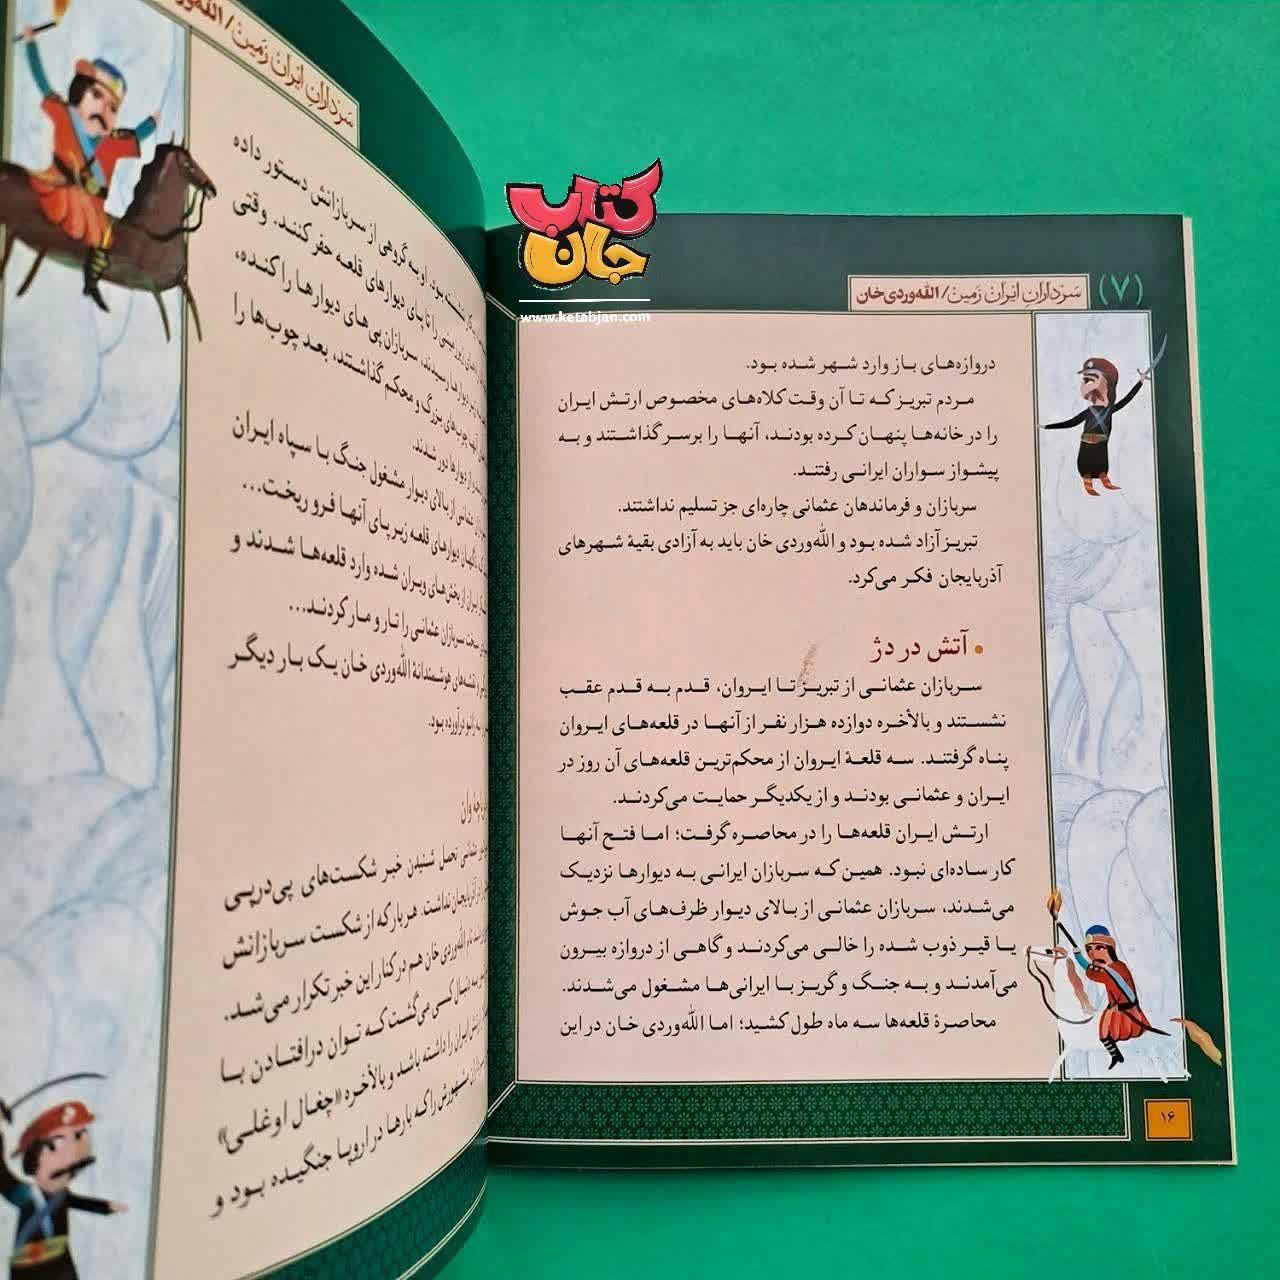 کتاب
جان
www.ketabjan.com
(۷)
سرداران ایران زمین/ الله‌وردی خان
دروازه‌های باز وارد شهر شده بود.
مردم تبریز که تا آن وقت کلاه‌های مخصوص ارتش ایران
را در خانه‌ها پنهان کرده بودند، آنها را برسر گذاشتند و به
پیشواز سواران ایرانی رفتند.
سربازان و فرماندهان عثمانی چاره‌ای جز تسلیم نداشتند.
تبریز آزاد شده بود و الله‌وردی خان باید به آزادی بقیهٔ شهرهای
آذربایجان فکر می‌کرد.
• آتش در دژ
سربازان عثمانی از تبریز تا ایروان، قدم به قدم عقب
نشستند و بالأخره دوازده هزار نفر از آنها در قلعه‌های ایروان
پناه گرفتند. سه قلعهٔ ایروان از محکم‌ترین قلعه‌های آن روز در
ایران و عثمانی بودند و از یکدیگر حمایت می‌کردند.
ارتش ایران قلعه‌ها را در محاصره گرفت؛ اما فتح آنها
کار ساده‌ای نبود. همین که سربازان ایرانی به دیوارها نزدیک
می‌شدند، سربازان عثمانی از بالای دیوار ظرف‌های آب جوش
یا قیر ذوب شده را خالی می‌کردند و گاهی از دروازه بیرون
می‌آمدند و به جنگ و گریز با ایرانی‌ها مشغول می‌شدند.
محاصرهٔ قلعه‌ها سه ماه طول کشید؛ اما الله‌وردی خان در این
۱۶
سرداران ایران زمین/
بود. او به گروهی از سربازانش دستور داده
را تا پای دیوارهای قلعه حفر کنند. وقتی
رسیدند، سربازان پی‌های دیوارها را کنده،
چوب‌های بزرگ و محکم گذاشتند، بعد چوب‌ها را
از دیوارها دور شدند.
عثمانی از بالای دیوار مشغول جنگ با سپاه ایران
ناگهان دیوارهای قلعه زیر پای آنها فرو ریخت...
ایران از بخش‌های ویران شده وارد قلعه‌ها شدند و
سخت سربازان عثمانی را تار و مار کردند...
نقشه‌های هوشمندانهٔ الله‌وردی خان یک بار دیگر
به زانو درآورده بود.
وان
تحمل شنیدن خبر شکست‌های پی‌درپی
آذربایجان نداشت. هر بار که از شکست سربازانش
نام الله‌وردی خان هم در کنار این خبر تکرار می‌شد.
دنبال کسی می‌گشت که توان درافتادن با
ارتش ایران را داشته باشد و بالأخره «چغال اوغلی»
مشهورش را که بارها در اروپا جنگیده بود و